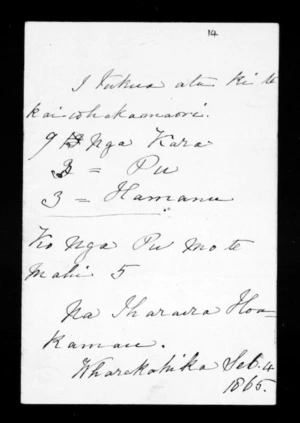 14
I tukua atu ki te
kaiwhakamaori.
9 Nga Kara
3 = Pu
3 = Hamanu
Ko Nga Pu mo te
Mahi 5
Na Iharaira Hou-
Kamau.
Wharekahika Seb. 4
1865.